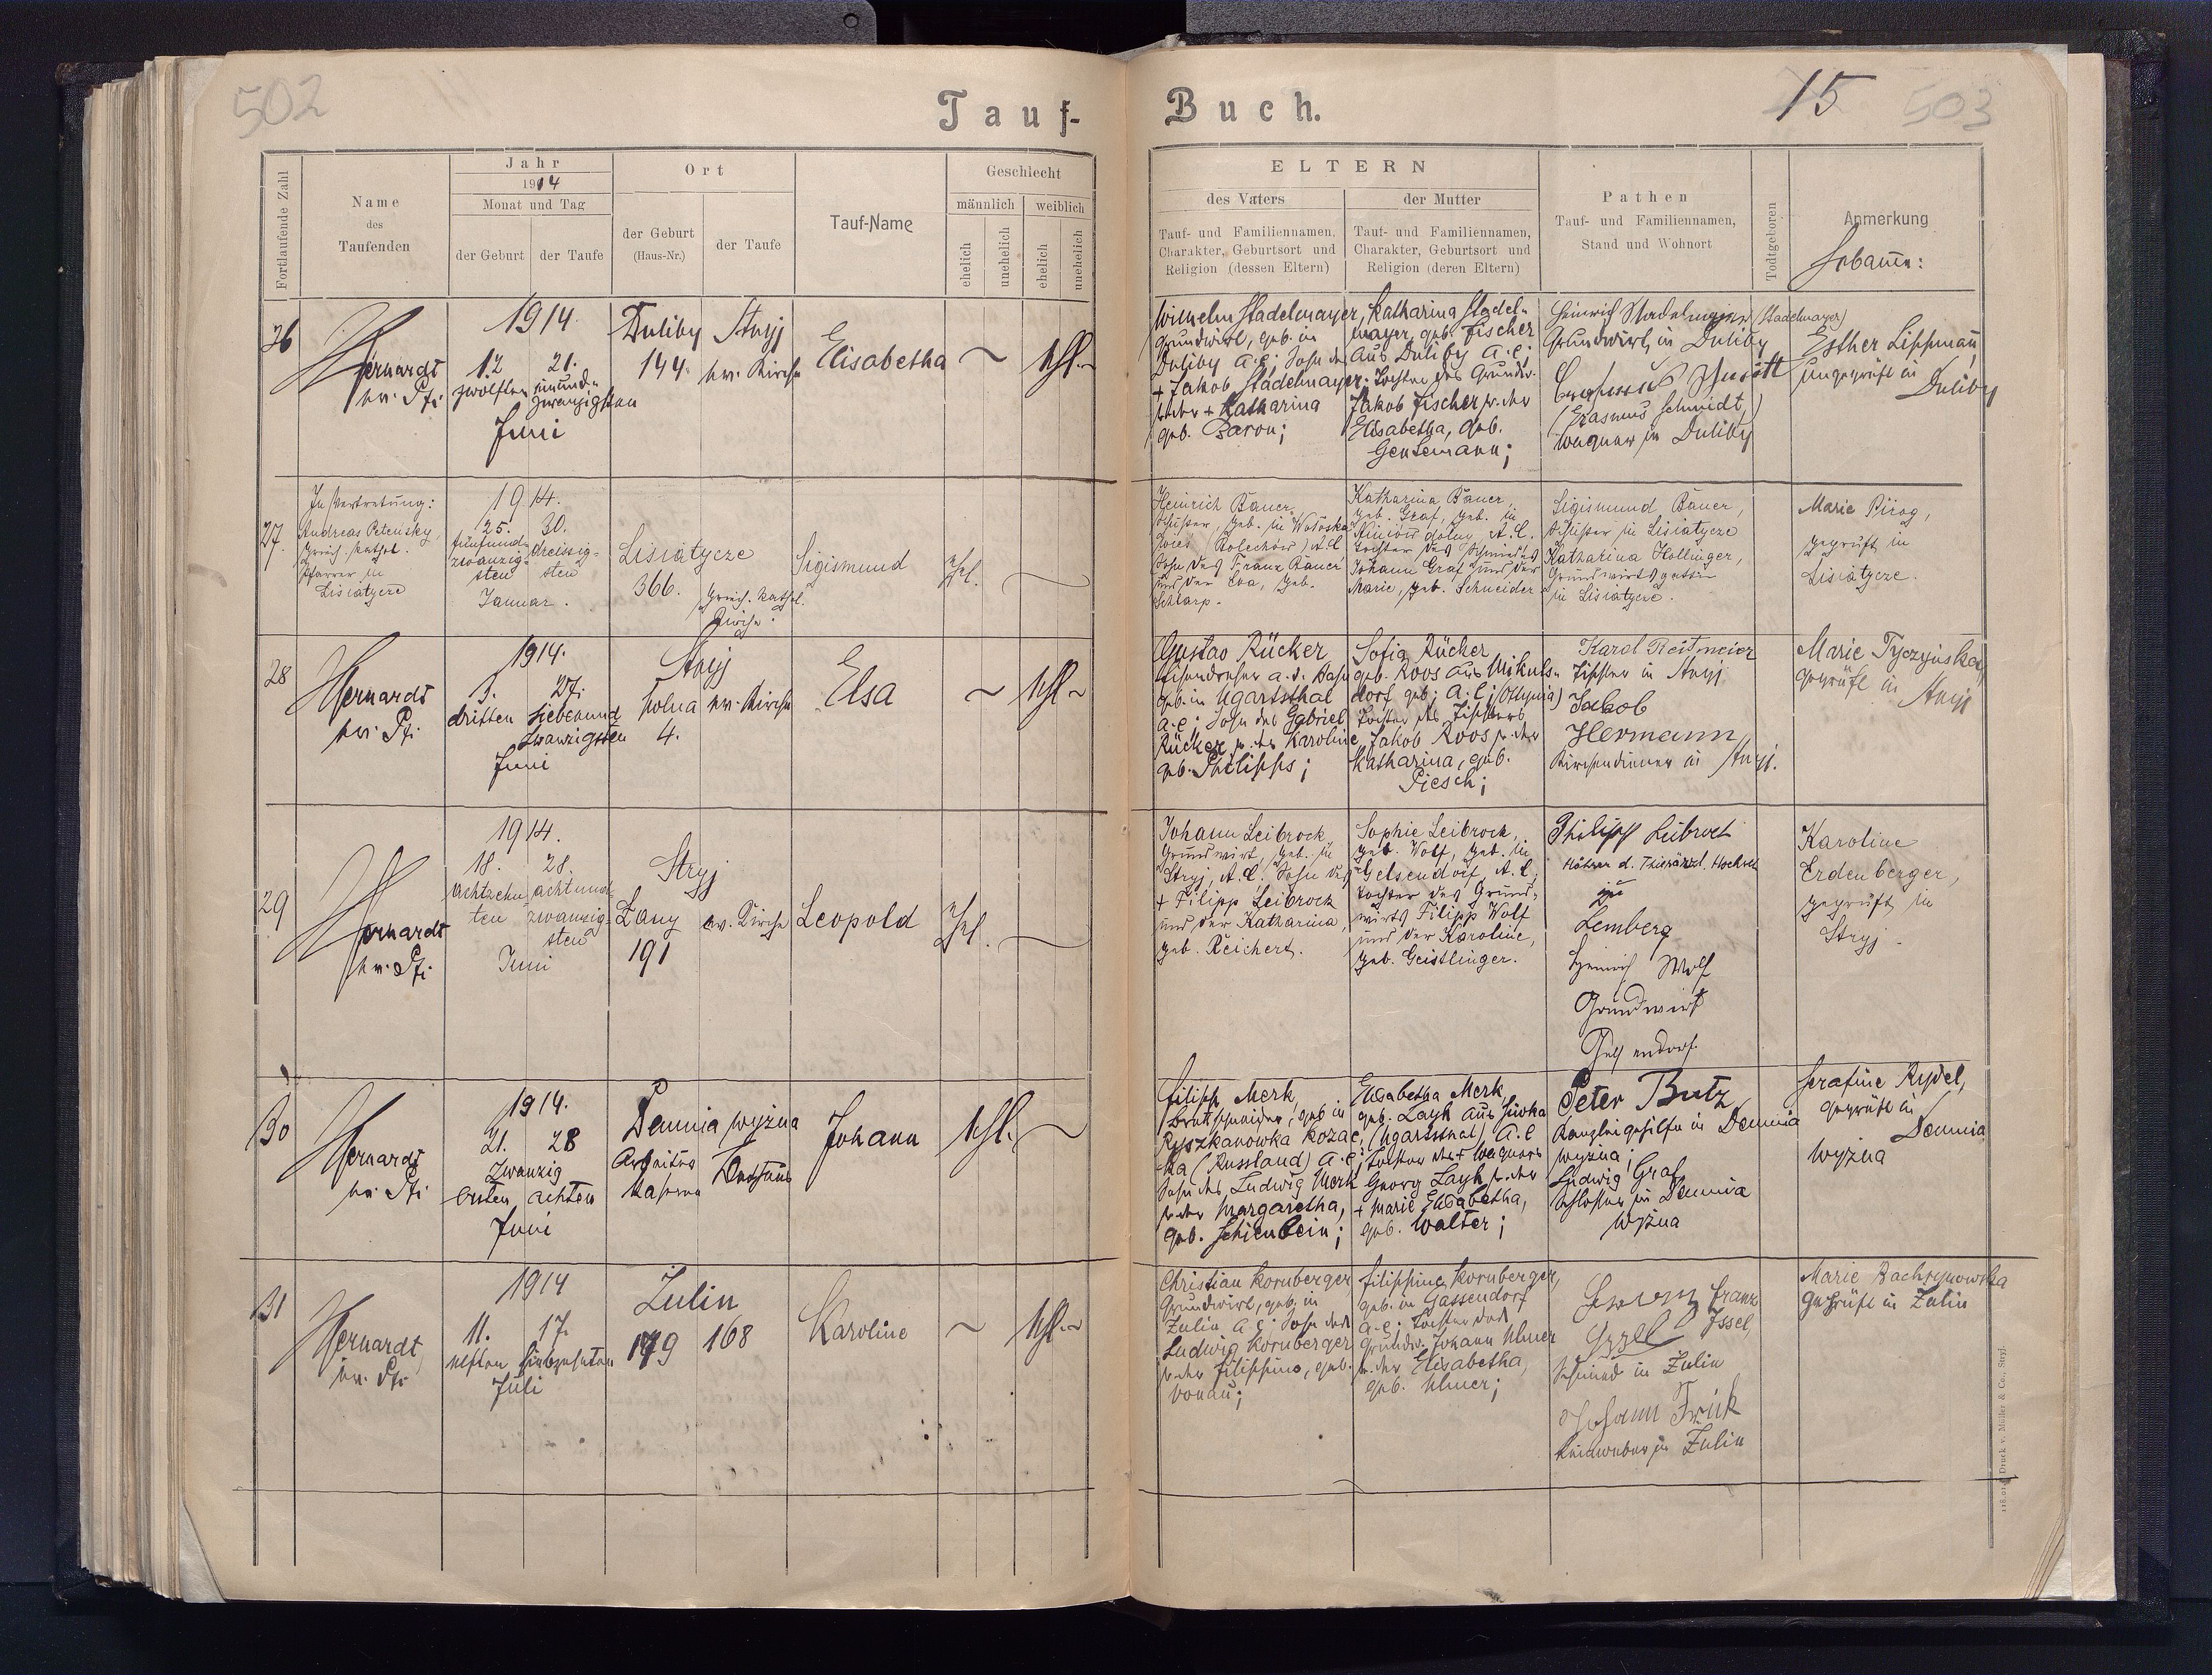 502
Tauf-
Buch.
15
503
Fortlaufende Zahl
Name
des
Taufenden
Jahr
1914
Monat und Tag
der Geburt
der Taufe
Ort
der Geburt
(Haus-Nr.)
der Taufe
Tauf-Name
Geschlecht
männlich
weiblich
ehelich
unehelich
ehelich
unehelich
ELTERN
des Vaters
Tauf- und Familiennamen,
Charakter, Geburtsort und
Religion (dessen Eltern)
der Mutter
Tauf- und Familiennamen,
Charakter, Geburtsort und
Religion (deren Eltern)
Pathen
Tauf- und Familiennamen,
Stand und Wohnort
Todtgeboren
Anmerkung
Hebamme:
26
Hernardt
ev. Pfr.
1914
12 21.
zwölften einund-
zwanzigsten
Juni
Duliby
144.
Stryj
ev. Kirche
Elisabetha
~
ehl. ~
Wilhelm Stadelmayer,
Grundwirt, geb. in
Duliby A.C; Sohn des
+ Jakob Stadelmayer
u. der + Katharina
geb. Baron;
Katharina Stadel-
mayer, geb. Fischer
aus Duliby A.C;
Tochter des Grundw.
Jakob Fischer u. der
Elisabetha, geb.
Gensemann;
Heinrich Stadelmayer (Stadelmayer)
Grundwirt in Duliby
Erasmus Schmidt
(Erasmus Schmidt,)
Wagner in Duliby
Esther Lippman,
ungeprüft in
Duliby
27.
In Vertretung:
Andreas Petensky,
griech. kathol.
Pfarrer in
Lisiatycze
1914.
25. 30.
fünfund- dreissig-
zwanzig- sten
sten
Januar.
Lisiatycze
366.
griech. kathol.
Kirche.
Sigismund
Ehl.
~
Heinrich Bauer,
Schuster, geb. in Woloska
wies (Bolechów) A.C.
Sohn des Franz Bauer
und der Eva, geb.
Scharp.
Katharina Bauer,
geb. Graf, geb. in
Niniów dolny, A.C.
Tochter des Schmiedes
Johann Graf und der
Marie, geb. Schneider
Sigismund Bauer,
Schuster in Lisiatycze
Katharina Hollinger,
Grundwirtsgattin
in Lisiatycze.
Marie Pirog,
geprüft in
Lisiatycze.
28
Hernardt
ev. Pfr.
1914.
3. 27.
dritten siebenund
zwanzigsten
Juni
Stryj
Polna
4.
ev. Kirche
Elsa
~
ehl ~
Gustav Rücker
Eisendreher a. d. Bahn
geb. in Ugartsthal
A.C; Sohn des Gabriel
Rücker u. der Karoline
geb. Philipps;
Sofia Rücker
geb. Roos aus Mikuls-
dorf geb; A.C; (Ottynia)
Tochter des Tischlers
Jakob Roos u. der
Katharina, geb.
Piesch;
Karol Reitmeier
Tischler in Stryj
Jakob
Hermann,
Kirchendiener in Stryj.
Marie Tyczynska,
geprüft in Stryj
29
Hernardt
ev. Pfr.
1914.
18. 28.
achtzehn- achtund-
ten zwanzig-
sten
Juni
Stryj
Łany
191
ev. Kirche
Leopold
Ehel.
~
Johann Leibrock,
Grundwirt, geb. in
Stryj, A.C. Sohn des
+ Filipp Leibrock
und der Katharina,
geb. Reichert.
Sophie Leibrock,
geb. Wolf, geb. in
Gelsendorf, A.C.
Tochter des Grund-
wirts Filipp Wolf
und der Karoline,
geb. Geistlinger.
Philipp Leibrock
Hörer d. Thierärztl. Hochsch
zu
Lemberg
Heinrich Wolf
Grundwirt
Gelsendorf.
Karoline
Erdenberger,
geprüft in
Stryj.
30
Hernardt
ev. Pfr.
1914.
21. 28
zwanzig
ersten achten
Juni
Demnia wyżna
Arbeiter
Kaserne
Bethaus
Johann
ehl.
~
Filipp Merk,
Brettschneider, geb in
Ryszkanowka Kozac-
ka (Russland) A.C;
Sohn des Ludwig Merk
u. der Margaretha,
geb. Schienbein;
Elisabetha Merk,
geb. Layh aus Siwka
(Ugartsthal) A.C
Tochter des + Wagners
Georg Layh u. der
+ Marie Elisabetha,
geb. Walter;
Peter Butz
Kanzleigehilfe in Demnia
wyżna;
Ludwig Graf
Schlosser in Demnia
wyżna
Serafine Rydel,
geprüft in
Demnia
wyżna
31
Hernardt
ev. Pfr.
1914
11. 17.
elften siebzehnten
Juli
Zulin
179
168
Karoline
~
ehl. ~
Christian Kornberger,
Grundwirt, geb. in
Zulin A.C; Sohn des
Ludwig Kornberger
u. der Filippine, geb.
Donau;
Filippine Kornberger,
geb. in Gassendorf
A.C; Tochter des
Grundw. Johann Ulmer
u. der Elisabetha,
geb. Ulmer;
Franz
Issel,
Schmied in Zulin
Johann Frik
Leinweber in Zulin
Marie Bachrynowska
geprüft in Zulin
Druck v. Müller & Co., Stryj.